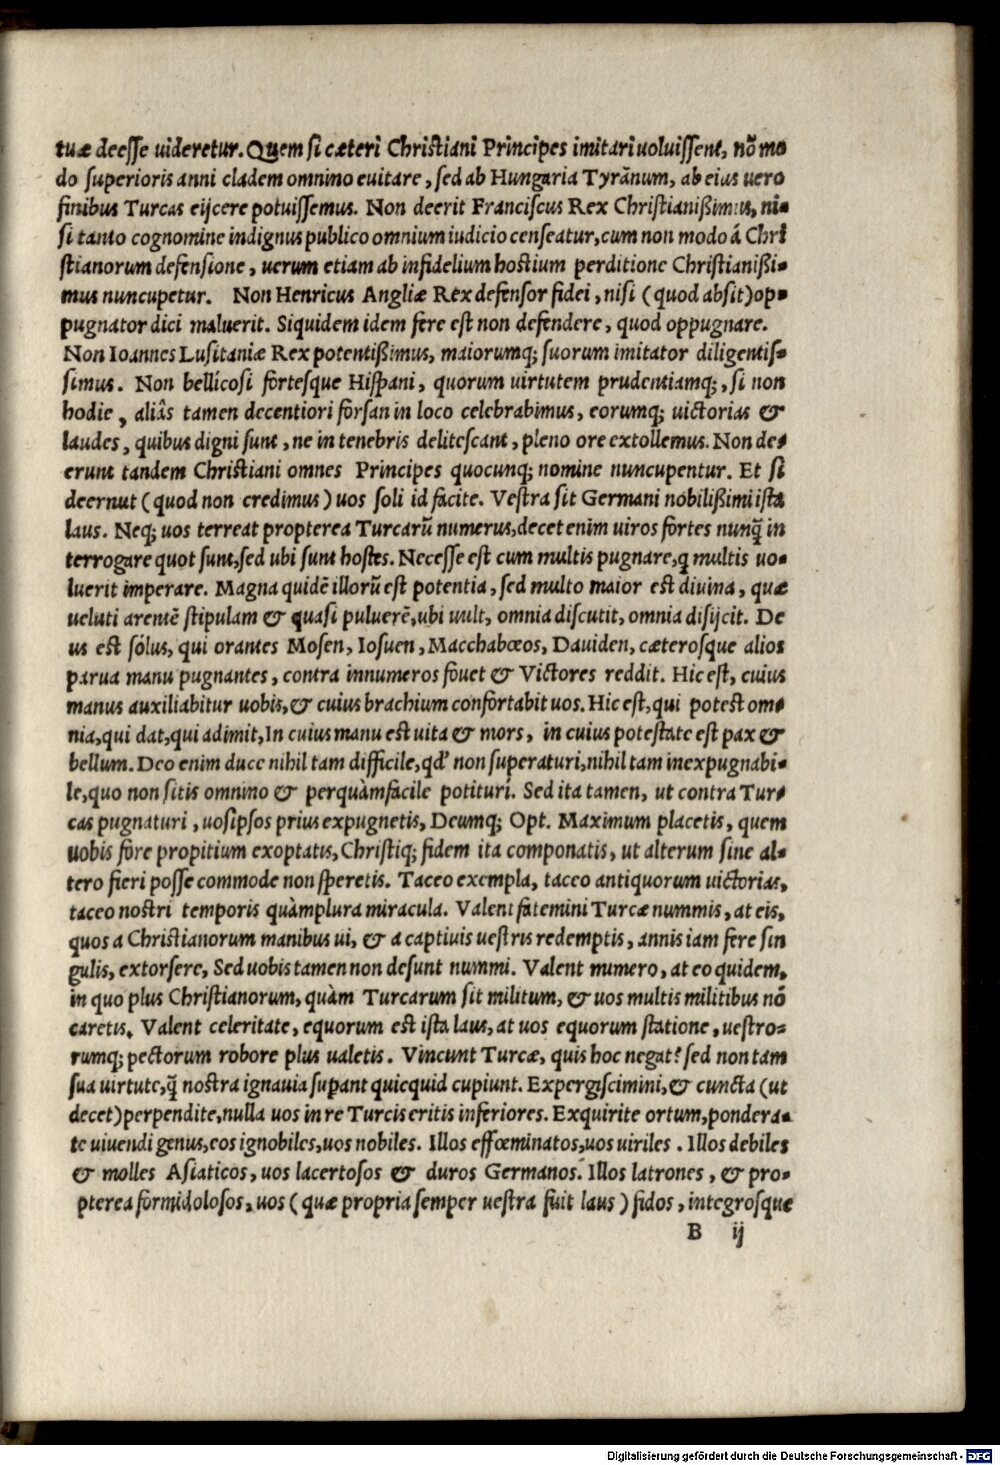 tuæ deesse uideretur. Quem si cæteri Christiani Principes imitari uoluissent, nõ mo
do superioris anni cladem omnino euitare, sed ab Hungaria Tyrãnum, ab eius uero
finibus Turcas eijcere potuissemus. Non deerit Franciscus Rex Christianißimus, ni-
si tanto cognomine indignus publico omnium iudicio censeatur, cum non modo á Chri
stianorum defensione, uerum etiam ab infidelium hostium perditione Christianißi-
mus nuncupetur. Non Henricus Angliæ Rex defensor fidei, nisi (quod absit) op-
pugnator dici maluerit. Siquidem idem fere est non defendere, quod oppugnare.
Non Ioannes Lusitaniæ Rex potentißimus, maiorumq; suorum imitator diligentis-
simus. Non bellicosi fortesque Hispani, quorum uirtutem prudentiamq;, si non
hodie, aliâs tamen decentiori forsan in loco celebrabimus, eorumq; uictorias &
laudes, quibus digni sunt, ne in tenebris delitescant, pleno ore extollemus. Non de-
erunt tandem Christiani omnes Principes quocunq; nomine nuncupentur. Et si
deernut (quod non credimus) uos soli id facite. Vestra sit Germani nobilißimi ista
laus. Neq; uos terreat propterea Turcarũ numerus, decet enim uiros fortes nunq̃ in
terrogare quot sunt, sed ubi sunt hostes. Necesse est cum multis pugnare, q multis uo-
luerit imperare. Magna quidẽ illorũ est potentia, sed multo maior est diuina, quæ
ueluti arentẽ stipulam & quasi puluerẽ, ubi uult, omnia discutit, omnia disijcit. De
us est solus, qui orantes Mosen, Iosuen, Macchabœos, Dauiden, cæterosque alios
parua manu pugnantes, contra innumeros fouet & Victores reddit. Hic est, cuius
manus auxiliabitur uobis, & cuius brachium confortabit uos. Hic est, qui potest om-
nia, qui dat, qui adimit, In cuius manu est uita & mors, in cuius potestate est pax &
bellum. Deo enim duce nihil tam difficile, qd' non superaturi, nihil tam inexpugnabi-
le, quo non sitis omnino & perquàm facile potituri. Sed ita tamen, ut contra Tur-
cas pugnaturi, uosipsos prius expugnetis, Deumq; Opt. Maximum placetis, quem
uobis fore propitium exoptatis, Christiq; fidem ita componatis, ut alterum sine al-
tero fieri posse commode non speretis. Taceo exempla, taceo antiquorum uictorias,
taceo nostri temporis quàmplura miracula. Valent fatemini Turcæ nummis, at eis,
quos a Christianorum manibus ui, & a captiuis uestris redemptis, annis iam fere sin
gulis, extorsere, Sed uobis tamen non desunt nummi. Valent numero, at eo quidem,
in quo plus Christianorum, quàm Turcarum sit militum, & uos multis militibus nõ
caretis. Valent celeritate, equorum est ista laus, at uos equorum statione, uestro-
rumq; pectorum robore plus ualetis. Vincunt Turcæ, quis hoc negat? sed non tam
sua uirtute, q̃ nostra ignauia supant quicquid cupiunt. Expergiscimini, & cuncta (ut
decet) perpendite, nulla uos in re Turcis eritis inferiores. Exquirite ortum, pondera-
te uiuendi genus, eos ignobiles, uos nobiles. Illos effœminatos, uos uiriles. Illos debiles
& molles Asiaticos, uos lacertosos & duros Germanos. Illos latrones, & pro-
pterea formidolosos, uos (quæ propria semper uestra fuit laus) fidos, integrosque
B ij
Digitalisierung gefördert durch die Deutsche Forschungsgemeinschaft - DFG